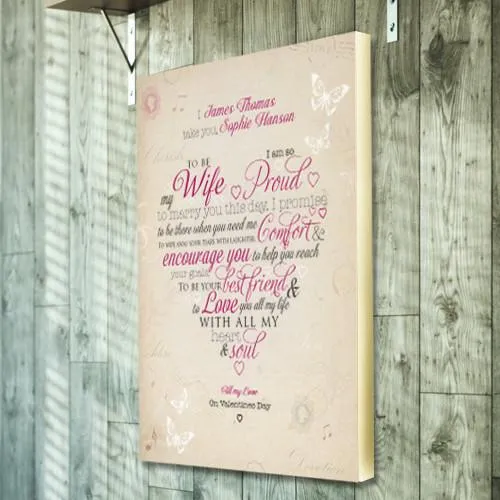 I James Thomas
take you, Sophie Hanson
TO BE I am so
my Wife Proud
to marry you this day, I promise
to be there when you need me Comfort &
TO WIPE AWAY YOUR TEARS WITH LAUGHTER,
encourage you to help you reach
your goals,
TO BE YOUR best friend &
to Love you all my life
WITH ALL MY
heart
& soul
All my Love
On Valentines Day
Devotion